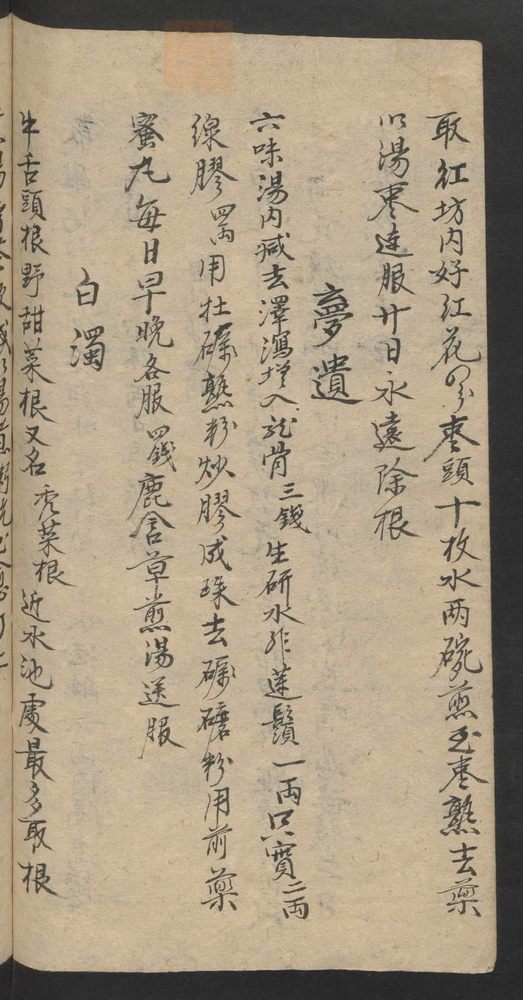 取紅坊内好紅花四分枣頭十枚水两碗煎至枣熟去藥
以湯枣連服廿日永遠除根
夢遺
六味湯内減去澤瀉増入龙骨三錢生研水飛蓮鬚一両只實二両
線膠四両用牡礪熟粉炒膠成珠去礪磨粉用前藥
蜜丸每日早晚各服四錢鹿含草煎湯送服
白濁
牛舌頭根野甜菜根又名秃菜根近水池處最多取根